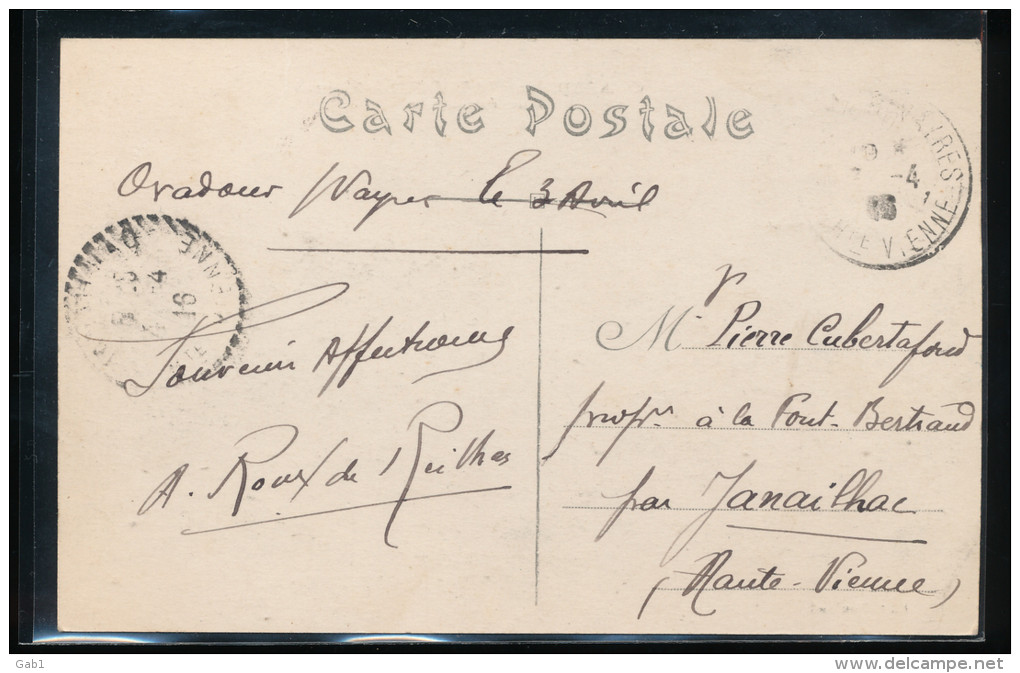 Carte Postale
Oradour s/Vayres le 3 Avril
Souvenir Affectueux
A. Roux de Reilhac
Mr Pierre Cubertafond
propre à la Font-Bertrand
par Janailhac
(Haute-Vienne)
-4
HTE VIENNE
16
Gab1
www.delcampe.net